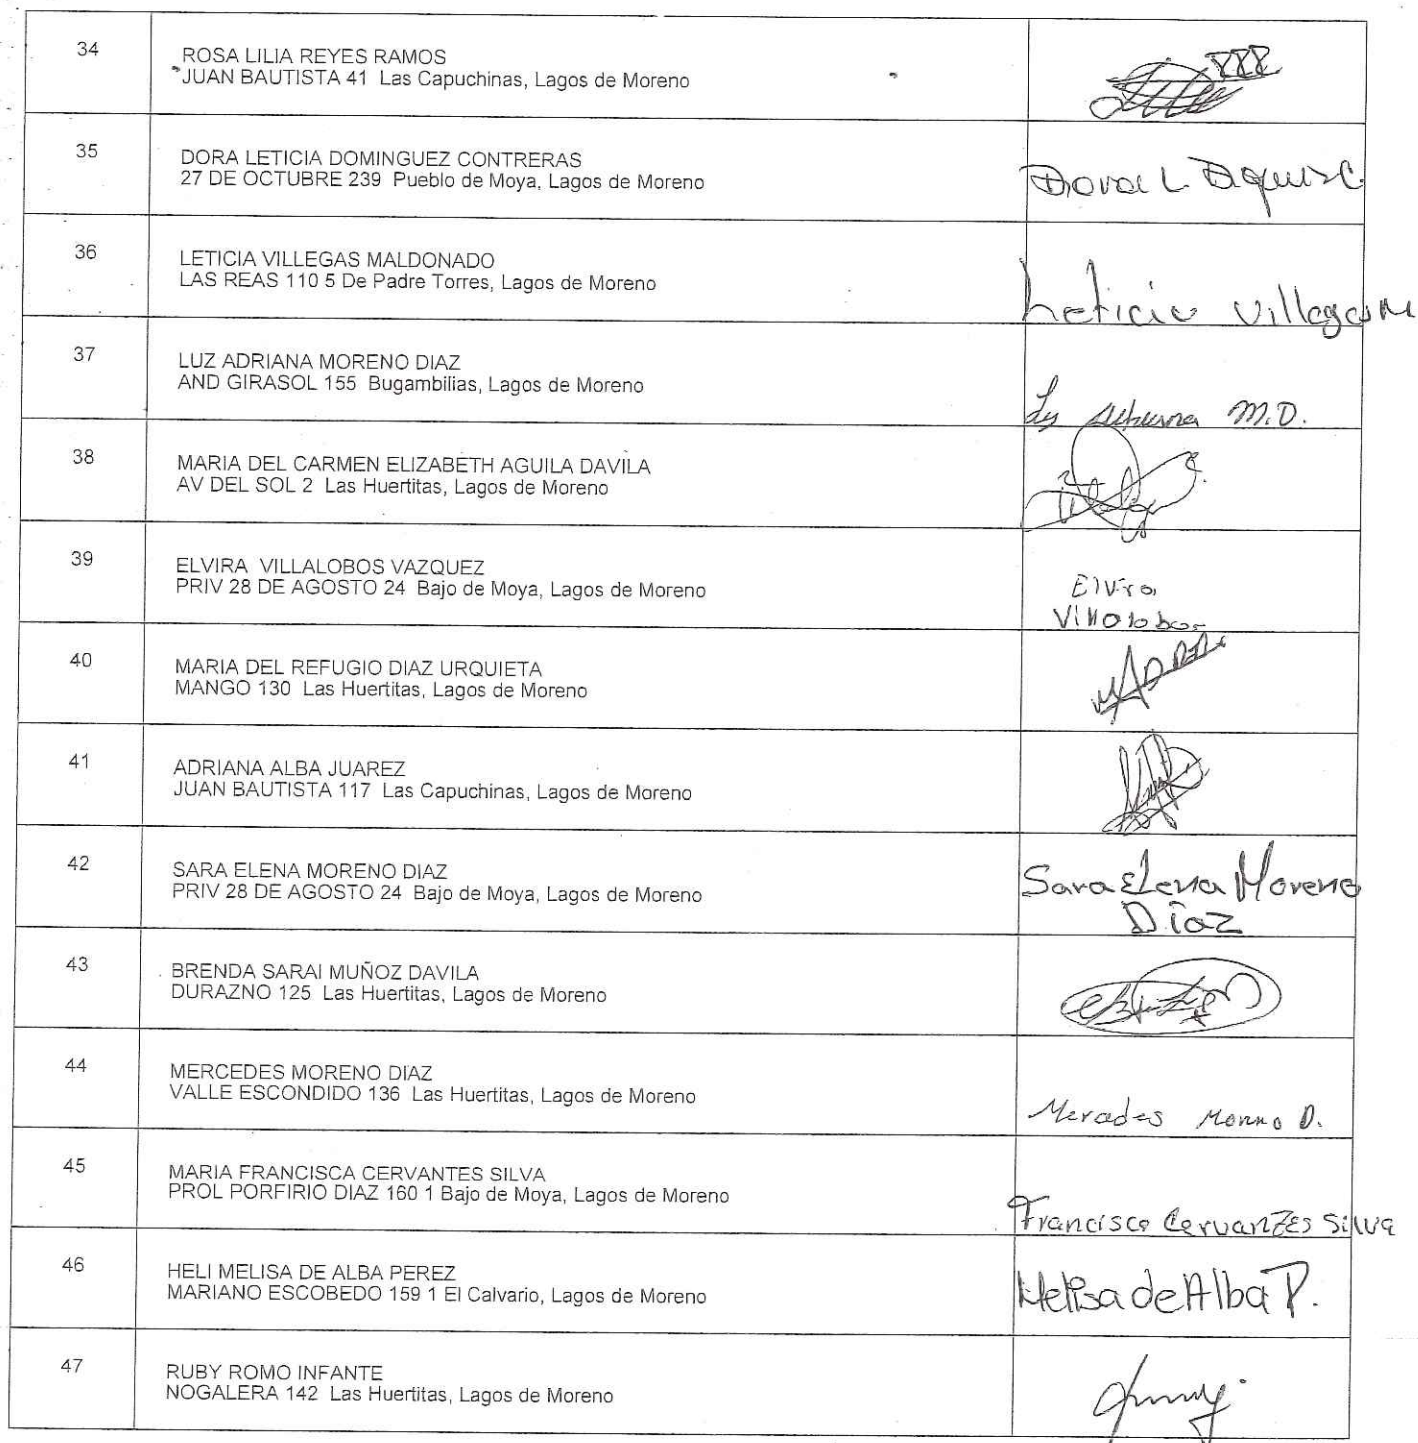 34
ROSA LILIA REYES RAMOS
JUAN BAUTISTA 41 Las Capuchinas, Lagos de Moreno
35
DORA LETICIA DOMINGUEZ CONTRERAS
27 DE OCTUBRE 239 Pueblo de Moya, Lagos de Moreno
Dora L
36
LETICIA VILLEGAS MALDONADO
LAS REAS 110 5 De Padre Torres, Lagos de Moreno
Leticia Villegas M
37
LUZ ADRIANA MORENO DIAZ
AND GIRASOL 155 Bugambilias, Lagos de Moreno
M.D.
38
MARIA DEL CARMEN ELIZABETH AGUILA DAVILA
AV DEL SOL 2 Las Huertitas, Lagos de Moreno
39
ELVIRA VILLALOBOS VAZQUEZ
PRIV 28 DE AGOSTO 24 Bajo de Moya, Lagos de Moreno
Elvira
Villalobos
40
MARIA DEL REFUGIO DIAZ URQUIETA
MANGO 130 Las Huertitas, Lagos de Moreno
41
ADRIANA ALBA JUAREZ
JUAN BAUTISTA 117 Las Capuchinas, Lagos de Moreno
42
SARA ELENA MORENO DIAZ
PRIV 28 DE AGOSTO 24 Bajo de Moya, Lagos de Moreno
Sara Elena Moreno
Díaz
43
BRENDA SARAI MUÑOZ DAVILA
DURAZNO 125 Las Huertitas, Lagos de Moreno
44
MERCEDES MORENO DIAZ
VALLE ESCONDIDO 136 Las Huertitas, Lagos de Moreno
Mercedes Moreno D.
45
MARIA FRANCISCA CERVANTES SILVA
PROL PORFIRIO DIAZ 160 1 Bajo de Moya, Lagos de Moreno
Francisca Cervantes Silva
46
HELI MELISA DE ALBA PEREZ
MARIANO ESCOBEDO 159 1 El Calvario, Lagos de Moreno
Melisa de Alba P.
47
RUBY ROMO INFANTE
NOGALERA 142 Las Huertitas, Lagos de Moreno